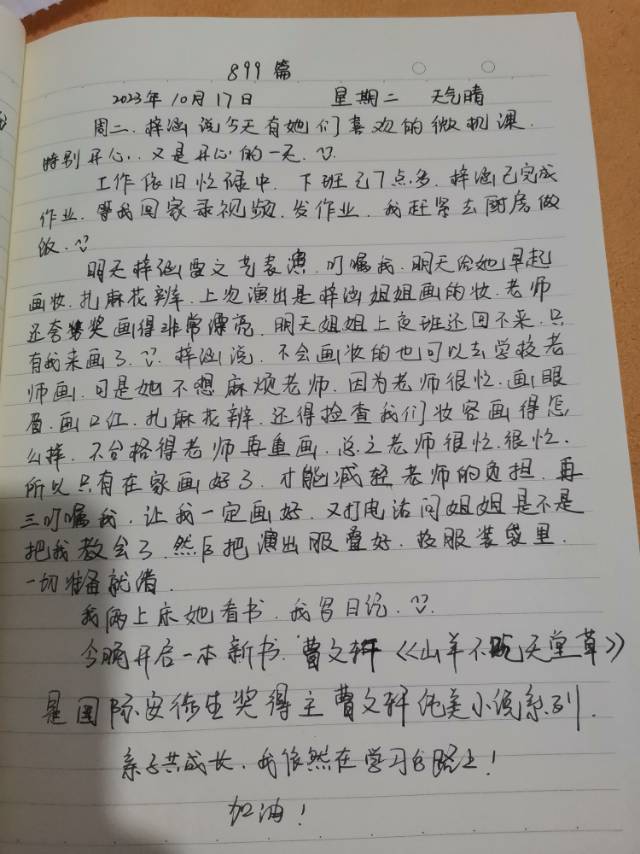 899篇
2023年10月17日 星期二 天气晴
周二.梓涵说今天有她们喜欢的微机课.
特别开心..又是开心的一天.
工作依旧忙碌中.下班已7点多.梓涵已完成
作业.等我回家录视频.发作业.我赶紧去厨房做
饭.
明天梓涵要文艺表演.叮嘱我.明天给她早起
画妆.扎麻花辫.上次演出是梓涵姐姐画的妆.老师
还夸奖画得非常漂亮.明天姐姐上夜班还回不来.只
有我来画了.梓涵说.不会画妆的也可以去学校老
师画.可是她不想麻烦老师.因为老师很忙.画眼
眉.画口红.扎麻花辫.还得检查我们妆容画得怎
么样.不合格得老师再重画.总之老师很忙.很忙.
所以只有在家画好了.才能减轻老师的负担.再
三叮嘱我.让我一定画好.又打电话问姐姐是不是
把我教会了.然后把演出服叠好.投服装袋里.
一切准备就绪.
我俩上床她看书.我写日记.
今晚开启一本新书.曹文轩《山羊不吃天堂草》
是国际安徒生奖得主曹文轩纯美小说系列.
亲子共成长.我依然在学习的路上!
加油!